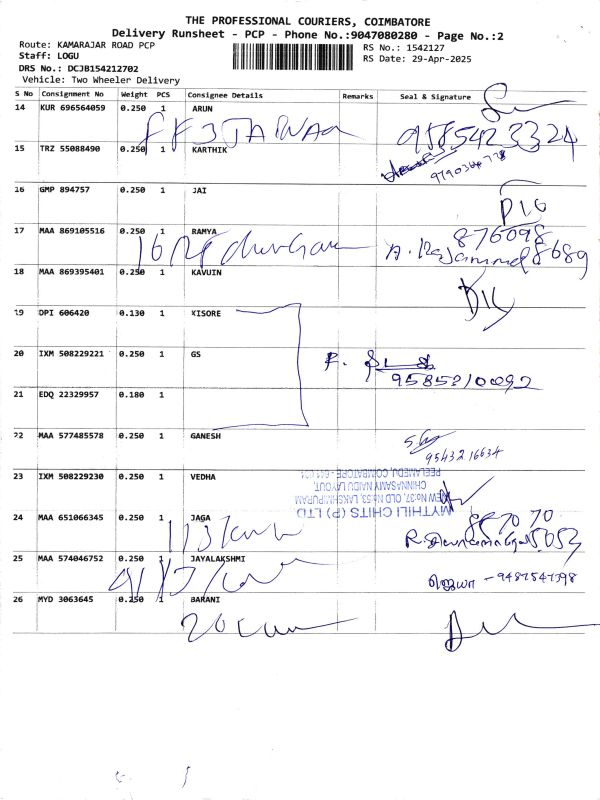 THE PROFESSIONAL COURIERS, COIMBATORE
Delivery Runsheet - PCP - Phone No.:9047080280 - Page No.:2
Route: KAMARAJAR ROAD PCP
RS No.: 1542127
Staff: LOGU
RS Date: 29-Apr-2025
DRS No.: DCJB154212702
Vehicle: Two Wheeler Delivery
S No Consignment No Weight PCS Consignee Details Remarks Seal & Signature
14 KUR 696564059 0.250 1 ARUN
9585423324
15 TRZ 55088490 0.250 1 KARTHIK
16 GMP 894757 0.250 1 JAI
17 MAA 869105516 0.250 1 RAMYA
876098
8689
18 MAA 869395401 0.250 1 KAVUIN
19 DPI 606420 0.130 1 KISORE
20 IXM 508229221 0.250 1 GS
9585210092
21 EDQ 22329957 0.180 1
22 MAA 577485578 0.250 1 GANESH
9543216634
23 IXM 508229230 0.250 1 VEDHA
MYTHILI CHITS (P) LTD
NEW No:37, OLD No:53, LAKSHMIPURAM
CHINNASAMY NAIDU LAYOUT,
PEELAMEDU, COIMBATORE
24 MAA 651066345 0.250 1 JAGA
25 MAA 574046752 0.250 1 JAYALAKSHMI
ஜெயா - 9487547398
26 MYD 3063645 0.250 1 BARANI